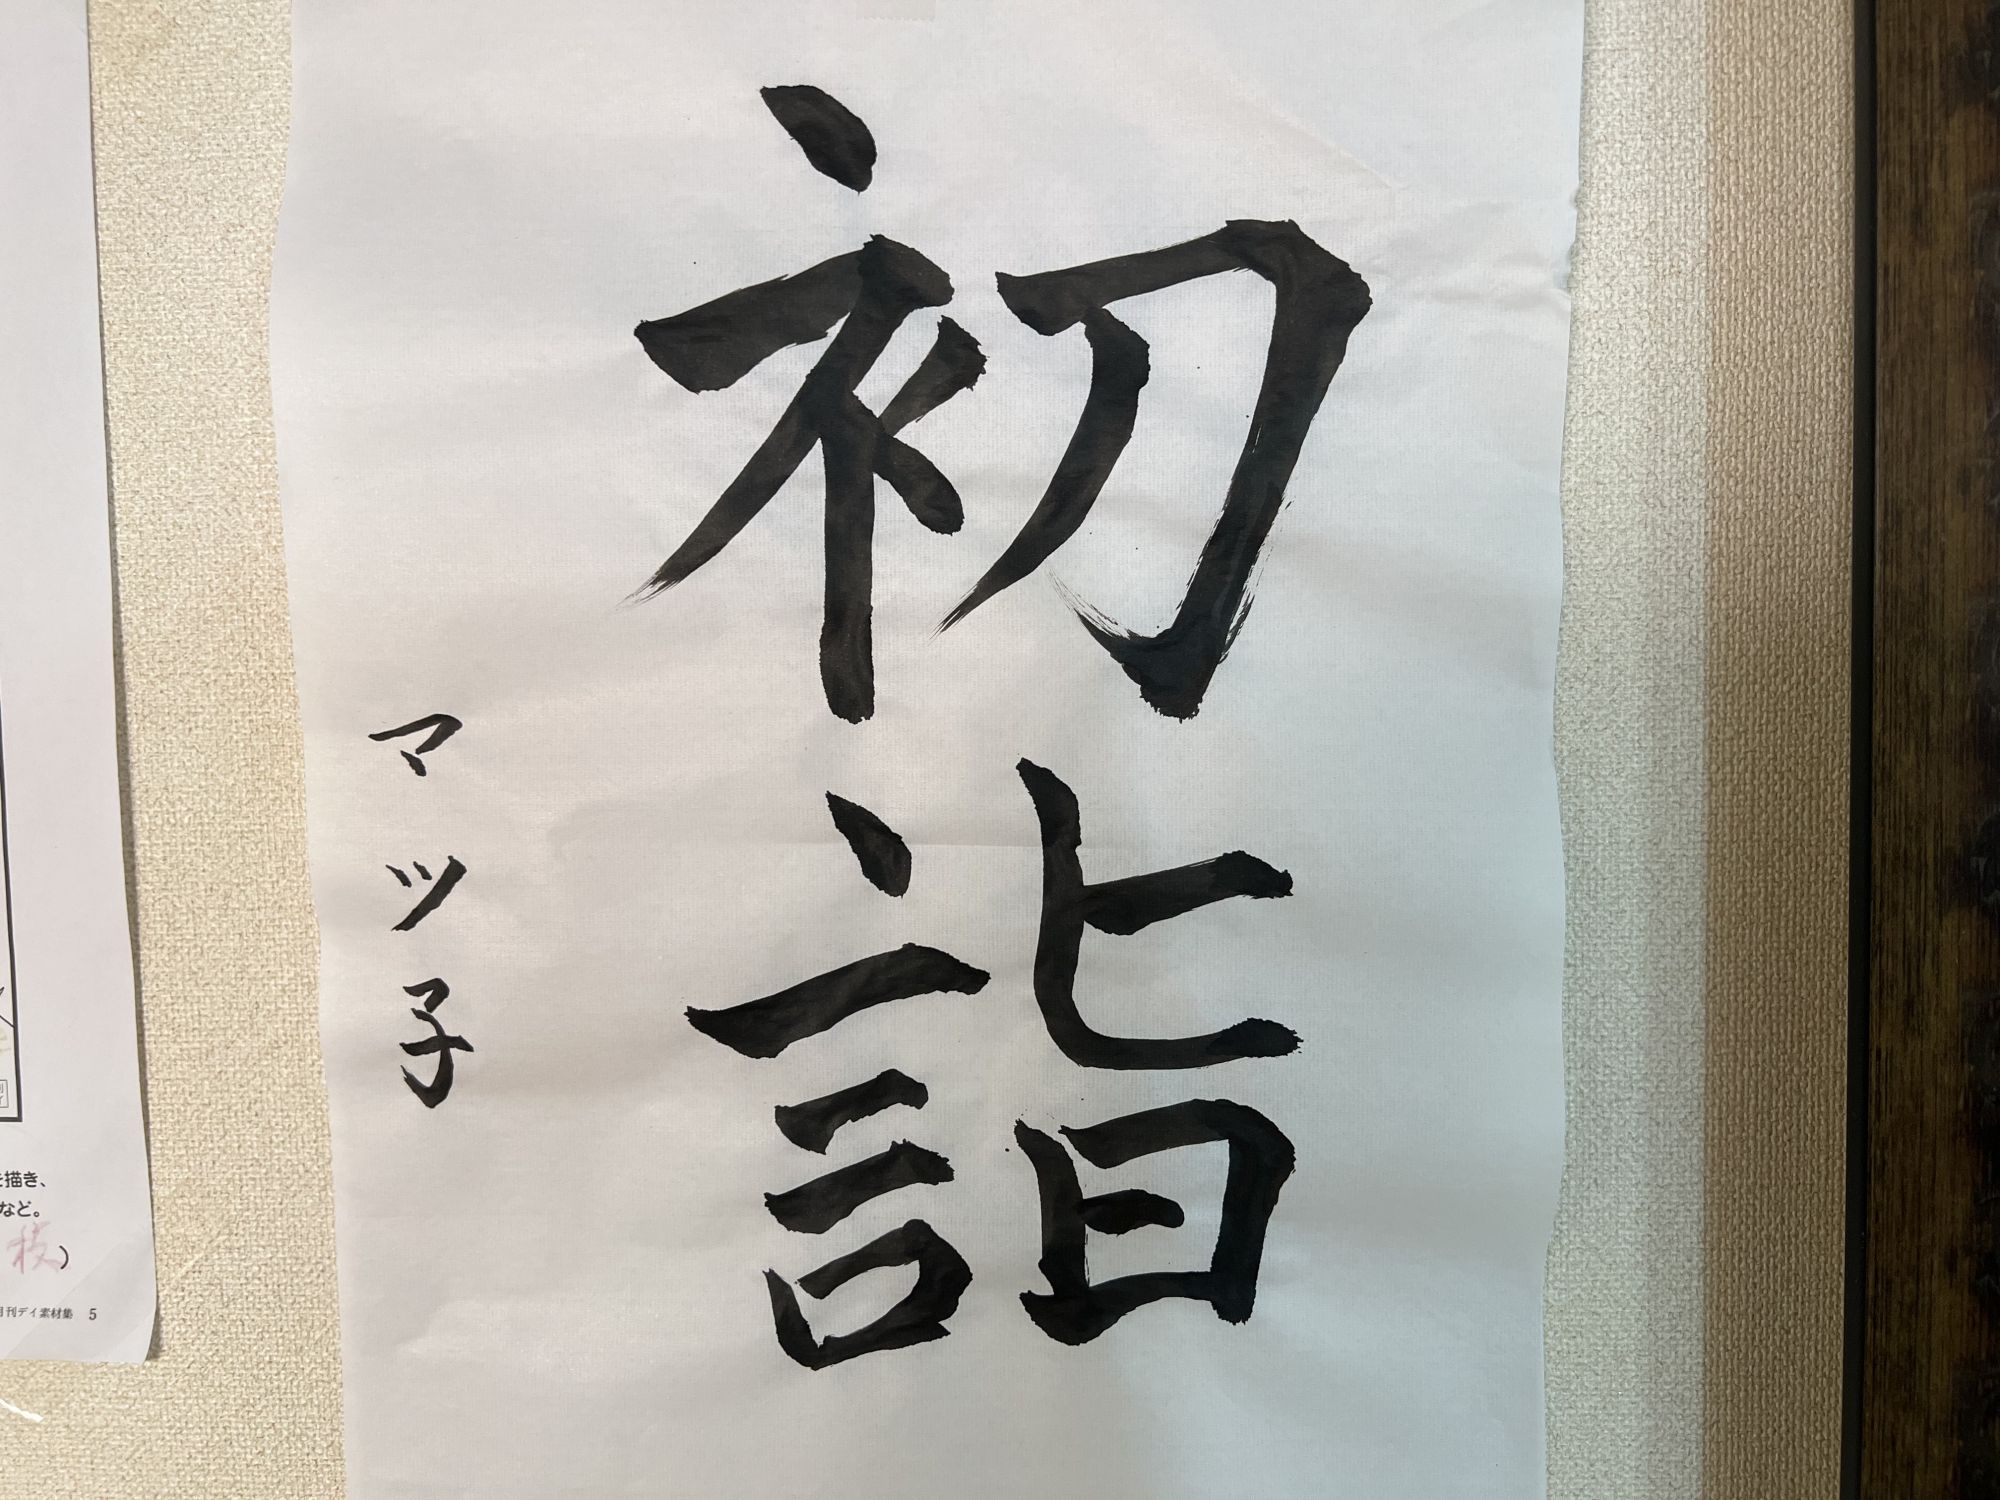 初詣
マツ子
を描き、
など。
枝）
月刊デイ素材集 5